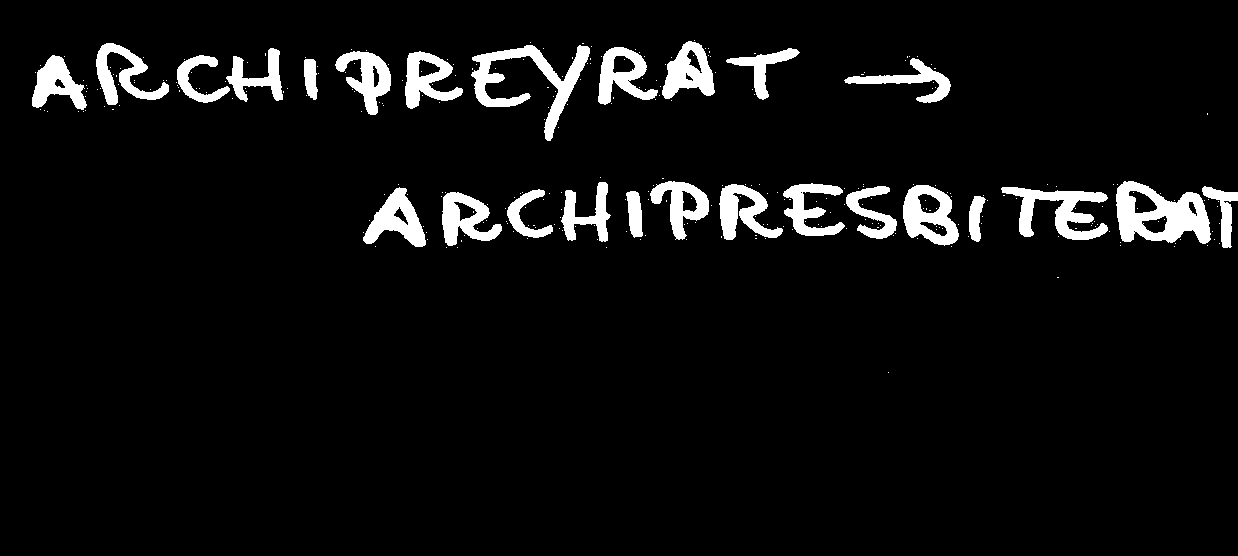 ARCHIPREYRAT →
ARCHIPRESBITERAT